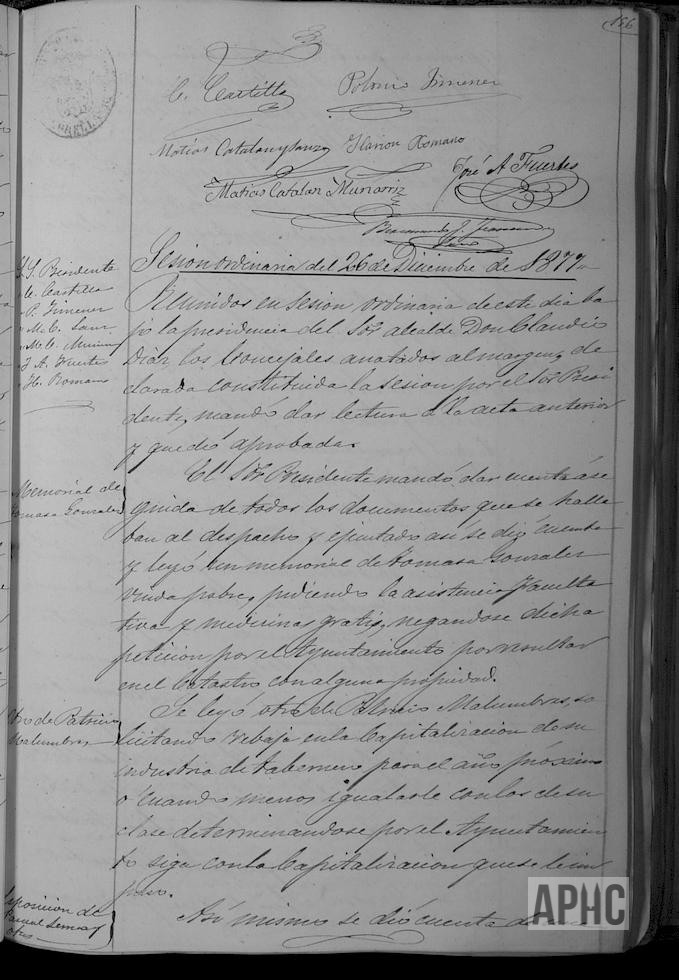 166
C. Castilla Polonio Jimenez
Matias Catalan y Sanz Ilarion Romano
Matias Catalan Munarriz José A. Fuertes
Sesion ordinaria del 26 de Diciembre de 1877
S. S. Presidente
C. Castilla
P. Jimenez
M. C. Sanz
J. A. Fuertes
H. Romano
Reunidos en sesion ordinaria de este dia ba
jo la presidencia del Sor alcalde Don Claudio
Diaz los Concejales anotados al margen, de
clarada constituida la sesion por el Sor Presi
dente, mandó dar lectura á la acta anterior
y quedó aprobada.
Memorial de
Tomasa Gonzalez
El Sor Presidente mandó dar cuenta ase
guida de todos los documentos que se halla
ban al despacho y ejecutado asi se dio cuenta
y leyó un memorial de Tomasa Gonzalez
viuda pobre, pidiendo la asistencia faculta
tiva y medicinas gratis, negandose dicha
peticion por el Ayuntamiento por resultar
en el Catastro con alguna propiedad.
Otro de Patricio
Malumbres
Se leyó otro de Patricio Malumbres, so
licitando rebaja en la Capitalizacion de su
industria de tabernero para el año próximo
o cuando menos igualarle con los de su
clase determinandose por el Ayuntamien
to siga con la Capitalizacion que se le im
puso.
Esposicion de
Pascual
otros
Asi mismo se dió cuenta de una
APHC